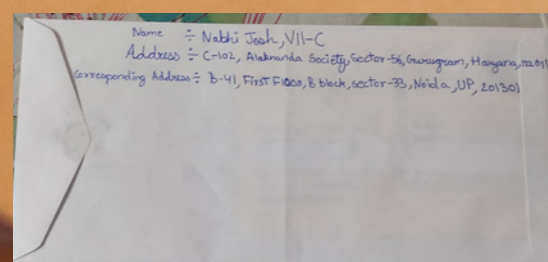 Name ÷ Nabhi Josh, VII-C
Address ÷ C-102, Alaknanda Society, Sector-56, Gurugram, Haryana,
Corresponding Address ÷ B-41, First Floor, B block, sector-33, Noida, UP, 201301